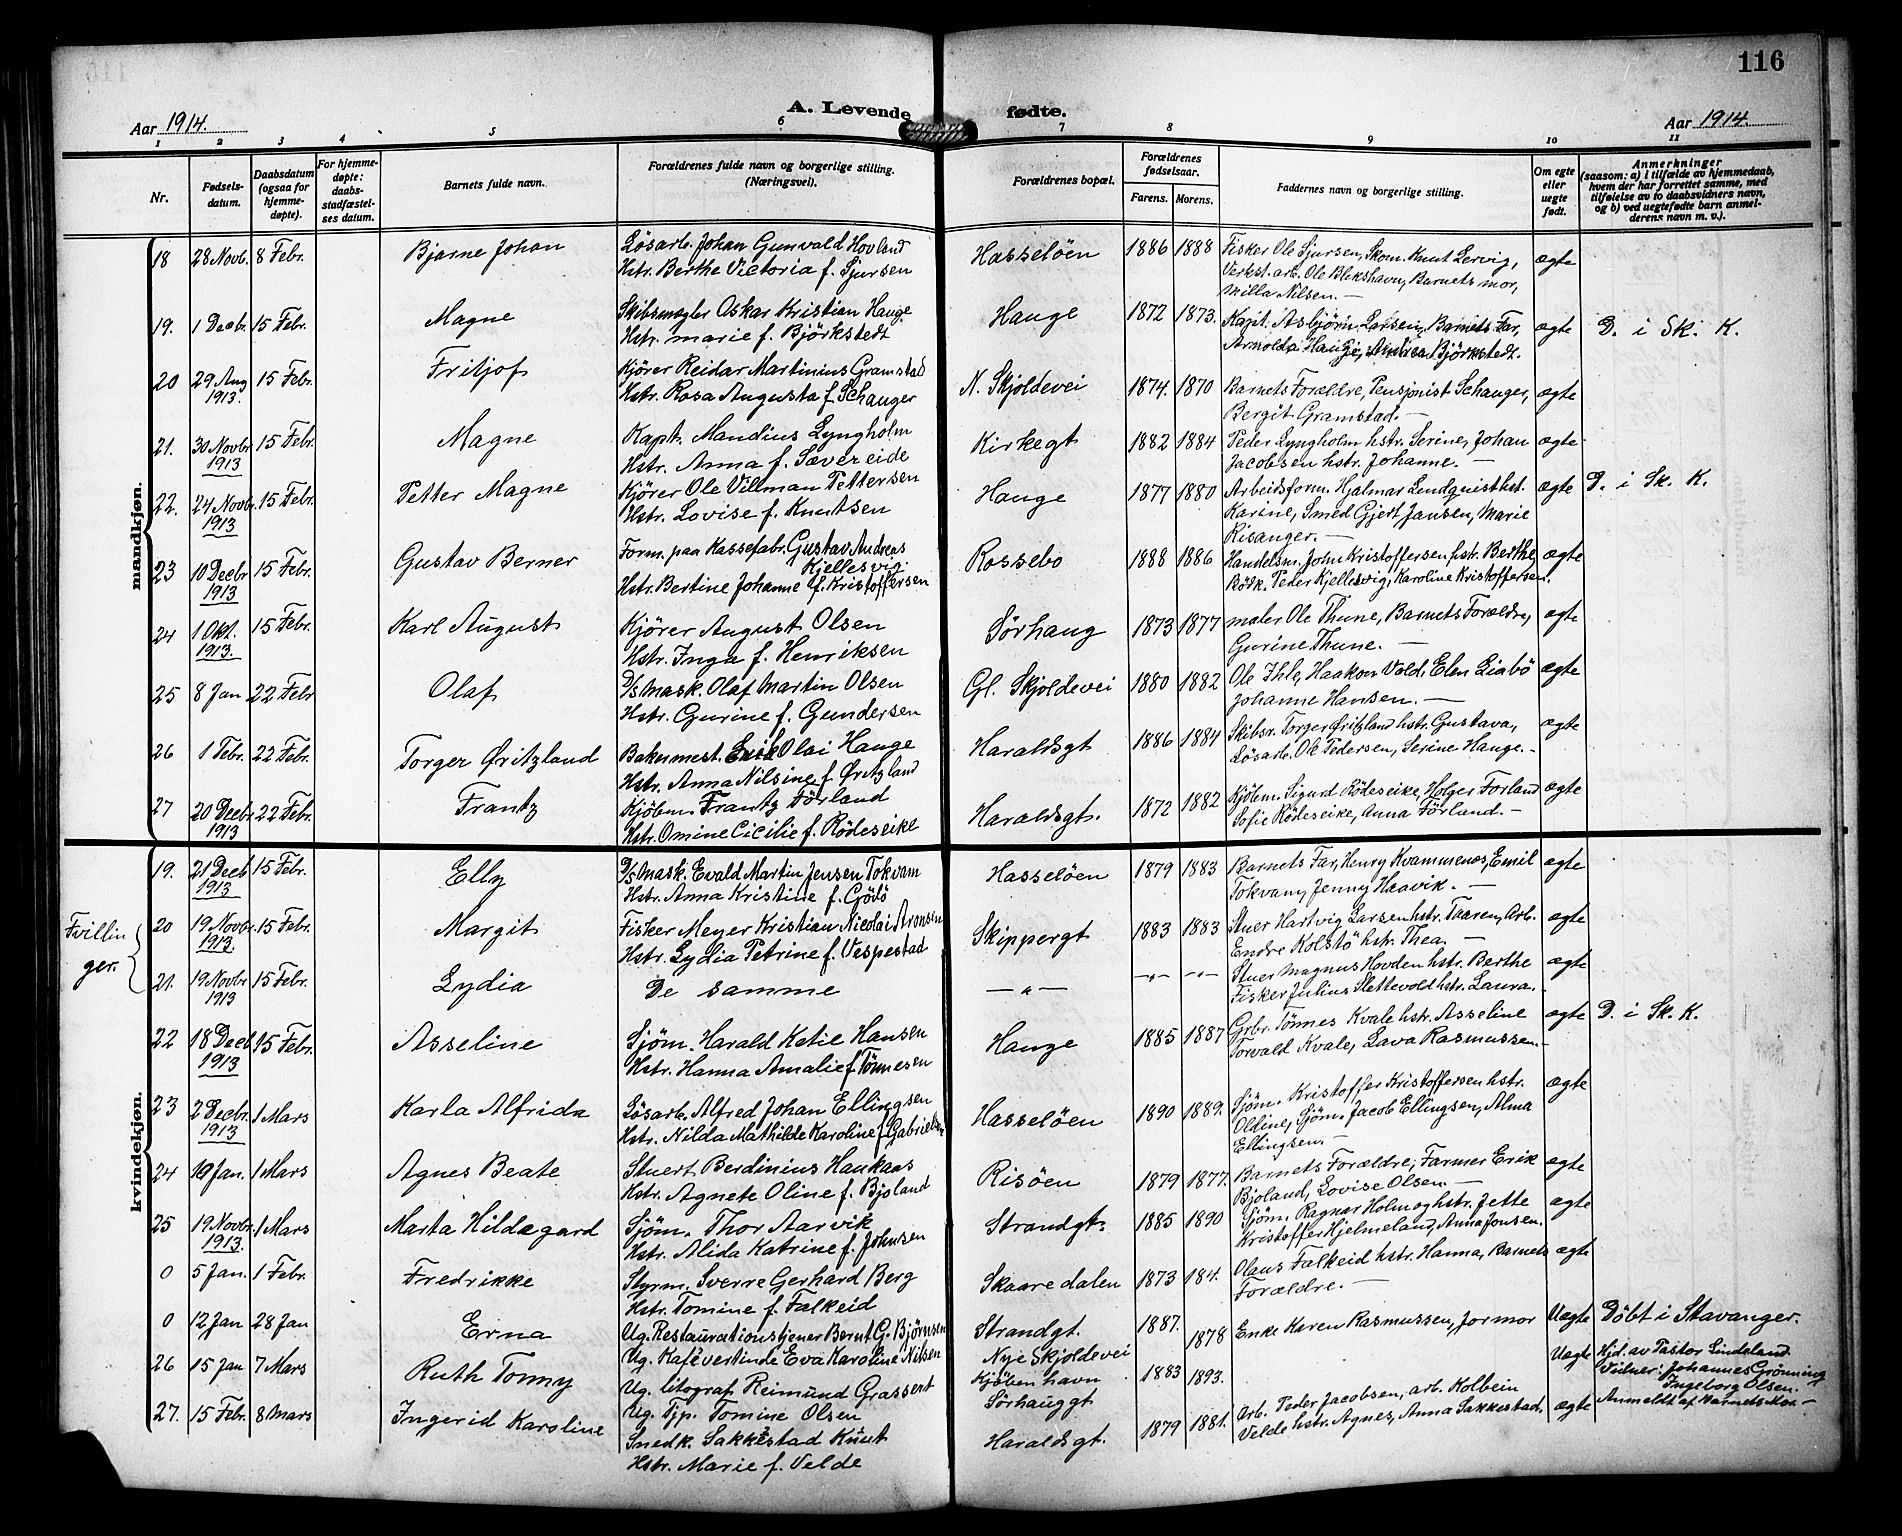 116
A. Levende fødte.
Aar 1914.
Aar 1914.
1 2 3 4 5 6 7 8 9 10 11
Nr.
Fødsels-
datum.
Daabsdatum
(ogsaa for
hjemme-
døpte).
For hjemme-
døpte:
daabs-
stadfæstel-
ses datum.
Barnets fulde navn.
Forældrenes fulde navn og borgerlige stilling.
(Næringsvei).
Forældrenes bopæl.
Forældrenes
fødselsaar.
Farens. Morens.
Faddernes navn og borgerlige stilling.
Om egte
eller
uegte
født.
Anmerkninger
(saasom: a) i tilfælde av hjemmedaab,
hvem der har forrettet samme, med
tilføielse av to daabsvidners navn,
og b) ved uegtefødte barn anmel-
derens navn m. v.).
mandkjøn.
18 28 Novb. 8 Febr. Bjarne Johan Løsarb. Johan Gunvald Hovland Hasseløen 1886 1888 Fisker Ole Sjursen, Skom. Knut Lervig, ægte
Hstr. Berthe Victoria f. Sjursen Verkst. arb. Ole Blekshavn, Barnets mor,
Milla Nilsen. —
19. 1 Decbr. 15 Febr. Magne Skibsmægler Oskar Kristian Hauge Hauge 1872 1873. Kapt. Asbjørn Larsen, Barnets Far, ægte D. i Sk. K.
Hstr. Marie f. Björkstedt Arnolda Hauge, Andrea Björkstedt.
20 29 Aug 15 Febr. Fritjof Kjörer Reidar Martinius Gramstad N. Skjoldevei 1874. 1870 Barnets Forældre, Pensjonist Schanger, ægte
1913. Hstr. Rosa Augusta f. Schanger Bergit Gramstad. —
21. 30 Novbr 15 Febr. Magne Kapt. Mandius Lyngholm Kirkegt 1882 1884 Peder Lyngholm hstr. Serine, Johan ægte
1913 Hstr. Anna f. Sævereide Jacobsen hstr. Johanne. —
22. 24 Novbr. 15 Febr. Petter Magne Kjörer Ole Villman Pettersen Hauge 1877 1880 Arbeidsform. Hjalmar Lindquist hst. ægte D. i Sk. K.
1913 Hstr. Lovise f. Knutsen Karine, Smed Gjert Jansen, Marie
Risanger. —
23 10 Decbr 15 Febr. Gustav Berner Form. paa Kassefabr. Gustav Andreas Rossebo 1888 1886 Handelsm. John Kristoffersen hstr. Berthe, ægte
1913 Kjellesvig
Hstr. Bertine Johanne f. Kristoffersen Bödk. Peder Kjellesvig, Karoline Kristoffersen.
24 1 Okt. 15 Febr. Karl August Kjörer August Olsen Sörhaug 1873 1877 Maler Ole Thune, Barnets Forældre, ægte
1913. Hstr. Inga f. Henriksen Gurine Thune. —
25 8 Jan 22 Febr Olaf D/S Mask. Olaf Martin Olsen Gl. Skjoldevei 1880 1882 Ole Ihle, Haakon Vold, Elen Liabö ægte
Hstr. Gurine f. Gundersen Johanne Hansen. —
26 1 Febr. 22 Febr. Torger Øritzland Bakermest. Emil Olai Hauge Haraldsgt 1886 1884 Skibsr. Torger Øritzland hstr. Gustava, ægte
Hstr. Anna Nilsine f. Øritzland Løsarb. Ole Pedersen, Serine Hauge. —
27 20 Decbr 22 Febr. Frantz Kjöbm. Frantz Förland Haraldsgt. 1872 1882 Kjöbm. Sigurd Rödeseike, Holger Forland ægte
1913 Hstr. Omine Cicilie f. Rödeseike Sofie Rödeseike, Anna Förland. —
kvindekjøn.
19. 21 Decb 15 Febr. Elly D/S Mask. Evald Martin Jensen Tokvam Hasseløen 1879 1883 Barnets Far, Henry Kvammenes, Emil ægte
1913 Hstr. Anna Kristine f. Gjöbö Tokvam, Jenny Haavik. —
Tvillin
ger.
20 19 Novbr. 15 Febr. Margit Fisker Meyer Kristian Nicolai Aronsen Skippergt 1883 1883 Stuer Hartvig Larsen hstr. Taaren, Arb. ægte
1913. Hstr. Lydia Petrine f. Vespestad Endre Kolstö hstr. Thea. —
21. 19 Novbr 15 Febr. Lydia De samme —"— —"— —"— Stuer Magnus Hovden hstr. Berthe ægte
1913 Fisker Julius Slettevold hstr. Laura. —
22 18 Decb 15 Febr. Asseline Sjöm. Harald Ketil Hansen Hauge 1885 1887 Grbr. Tönnes Kvale hstr. Asseline ægte D. i Sk. K.
1913 Hstr. Hanna Amalie f. Tönnesen Torvald Kvale, Lava Rasmussen. —
23 2 Decbr. 1 Mars Karla Alfrida Løsarb. Alfred Johan Ellingsen Hasseløen 1890 1889. Sjöm. Kristoffer Kristoffersen hstr. ægte
1913 Hstr. Nilda Mathilde Karoline f. Gabrielsen Oldine, Sjöm. Jacob Ellingsen, Alma
Ellingsen. —
24 10 Jan. 1 Mars Agnes Beate Stuert Berdinius Haukaas Risöen 1879 1877. Barnets Forældre, Farmer Erik ægte
Hstr. Agnete Oline f. Bjoland Bjoland, Lovise Olsen. —
25 19 Novbr. 1 Mars Marta Hildegard Sjöm. Thor Aarvik Strandgt. 1885 1890 Sjöm. Ragnar Holm og hstr. Jette ægte
1913. Hstr. Alida Katrine f. Johnsen Kristoffer Hjelmeland, Anna Jonsen.
0 5 Jan. 1 Febr. Fredrikke Styrm. Sverre Gerhard Berg Skaaredalen 1873 184. Olaus Falkeid hstr. Hanna, Barnets ægte
Hstr. Tomine f. Falkeid Forældre. —
0 12 Jan 28 Jan Erna Ug. Restaurationstjener Bernt G. Bjørnsen Strandgt. 1887. 1878 Enke Karen Rasmussen, Jormor Uægte Döbt i Stavanger.
Ug. Kafévertinde Eva Karoline Nilsen Nye Skjoldevei
26 15 Jan 7 Mars Ruth Tonny Ug. litograf Reimund Grassert Kjöbenhavn 1883 1893. Uægte Hjd. av Pastor Lindeland.
Ug. Tjp. Tomine Olsen Sörhauggt Vidner: Johannes Grönning
Ingeborg Olsen.
Anmeldt af Barnets Mor —
27. 15 Febr. 8 Mars Ingerid Karoline Snedk. Sakkestad Knut Haraldsgt. 1879 1881. Arb. Peder Jacobsen, arb. Kolbein ægte
Hstr. Marie f. Velde Velde hstr. Agnes, Anna Sakkestad.